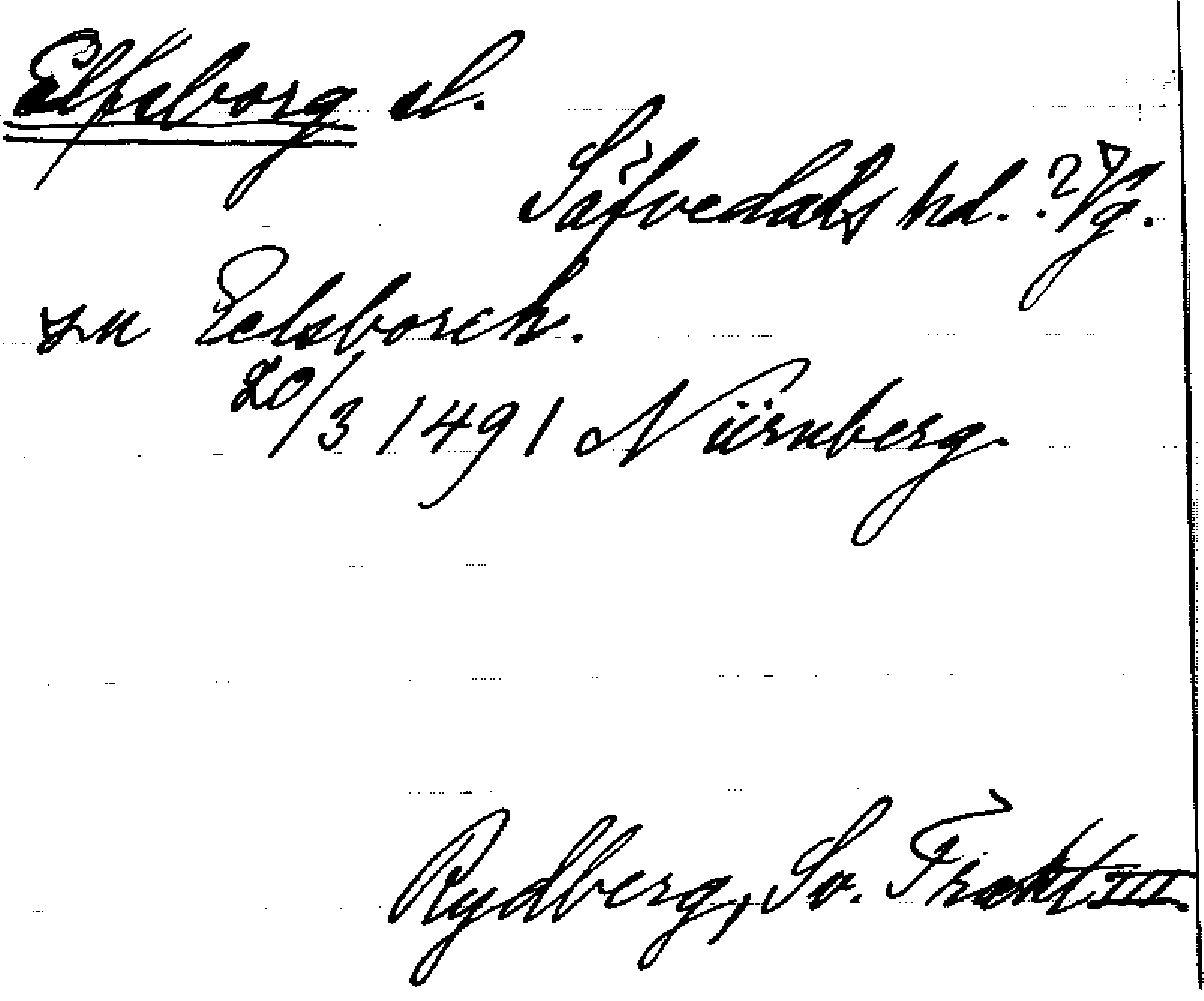 Elfsborg sl.
Säfvedals hd. ? Vg.
zu Eelsborch.
20/3 1491 Nürnberg.
Rydberg, Sv. Trakt III.